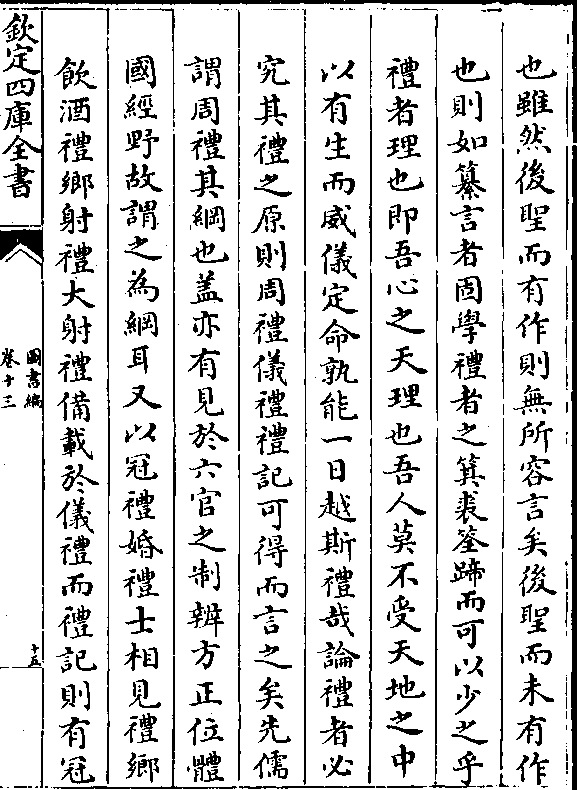 也雖然後聖而有作則無所容言矣後聖而未有作
也則如纂言者固學禮者之箕裘筌蹄而可以少之乎
禮者理也即吾心之天理也吾人莫不受天地之中
以有生而威儀定命孰能一日越斯禮哉論禮者必
究其禮之原則周禮儀禮禮記可得而言之矣先儒
謂周禮其綱也盖亦有見於六官之制辨方正位體
國經野故謂之為綱耳又以冠禮婚禮士相見禮鄉
飲酒禮鄉射禮大射禮備載於儀禮而禮記則有冠
欽定四庫全書
圖書編
卷十三
十五